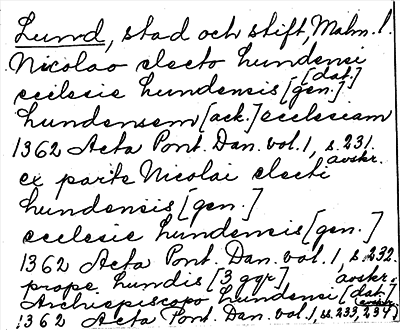 Lund, stad och stift, Malm. l.
Nicolao electo lundensi [dat.]
ecclesie lundensis [gen.]
lundensem [ack.] ecclesiam
1362 Acta Pont. Dan. vol. 1, s. 231. avskr.
ex parte Nicolai electi
lundensis [gen.]
ecclesie lundensis [gen.]
1362 Acta Pont. Dan. vol. 1, s. 232. avskr.
prope Lundis [3 ggr]
Archiepiscopo lundensi [dat.]
1362 Acta Pont. Dan. vol. 1, ss. 233, 234. avskr.